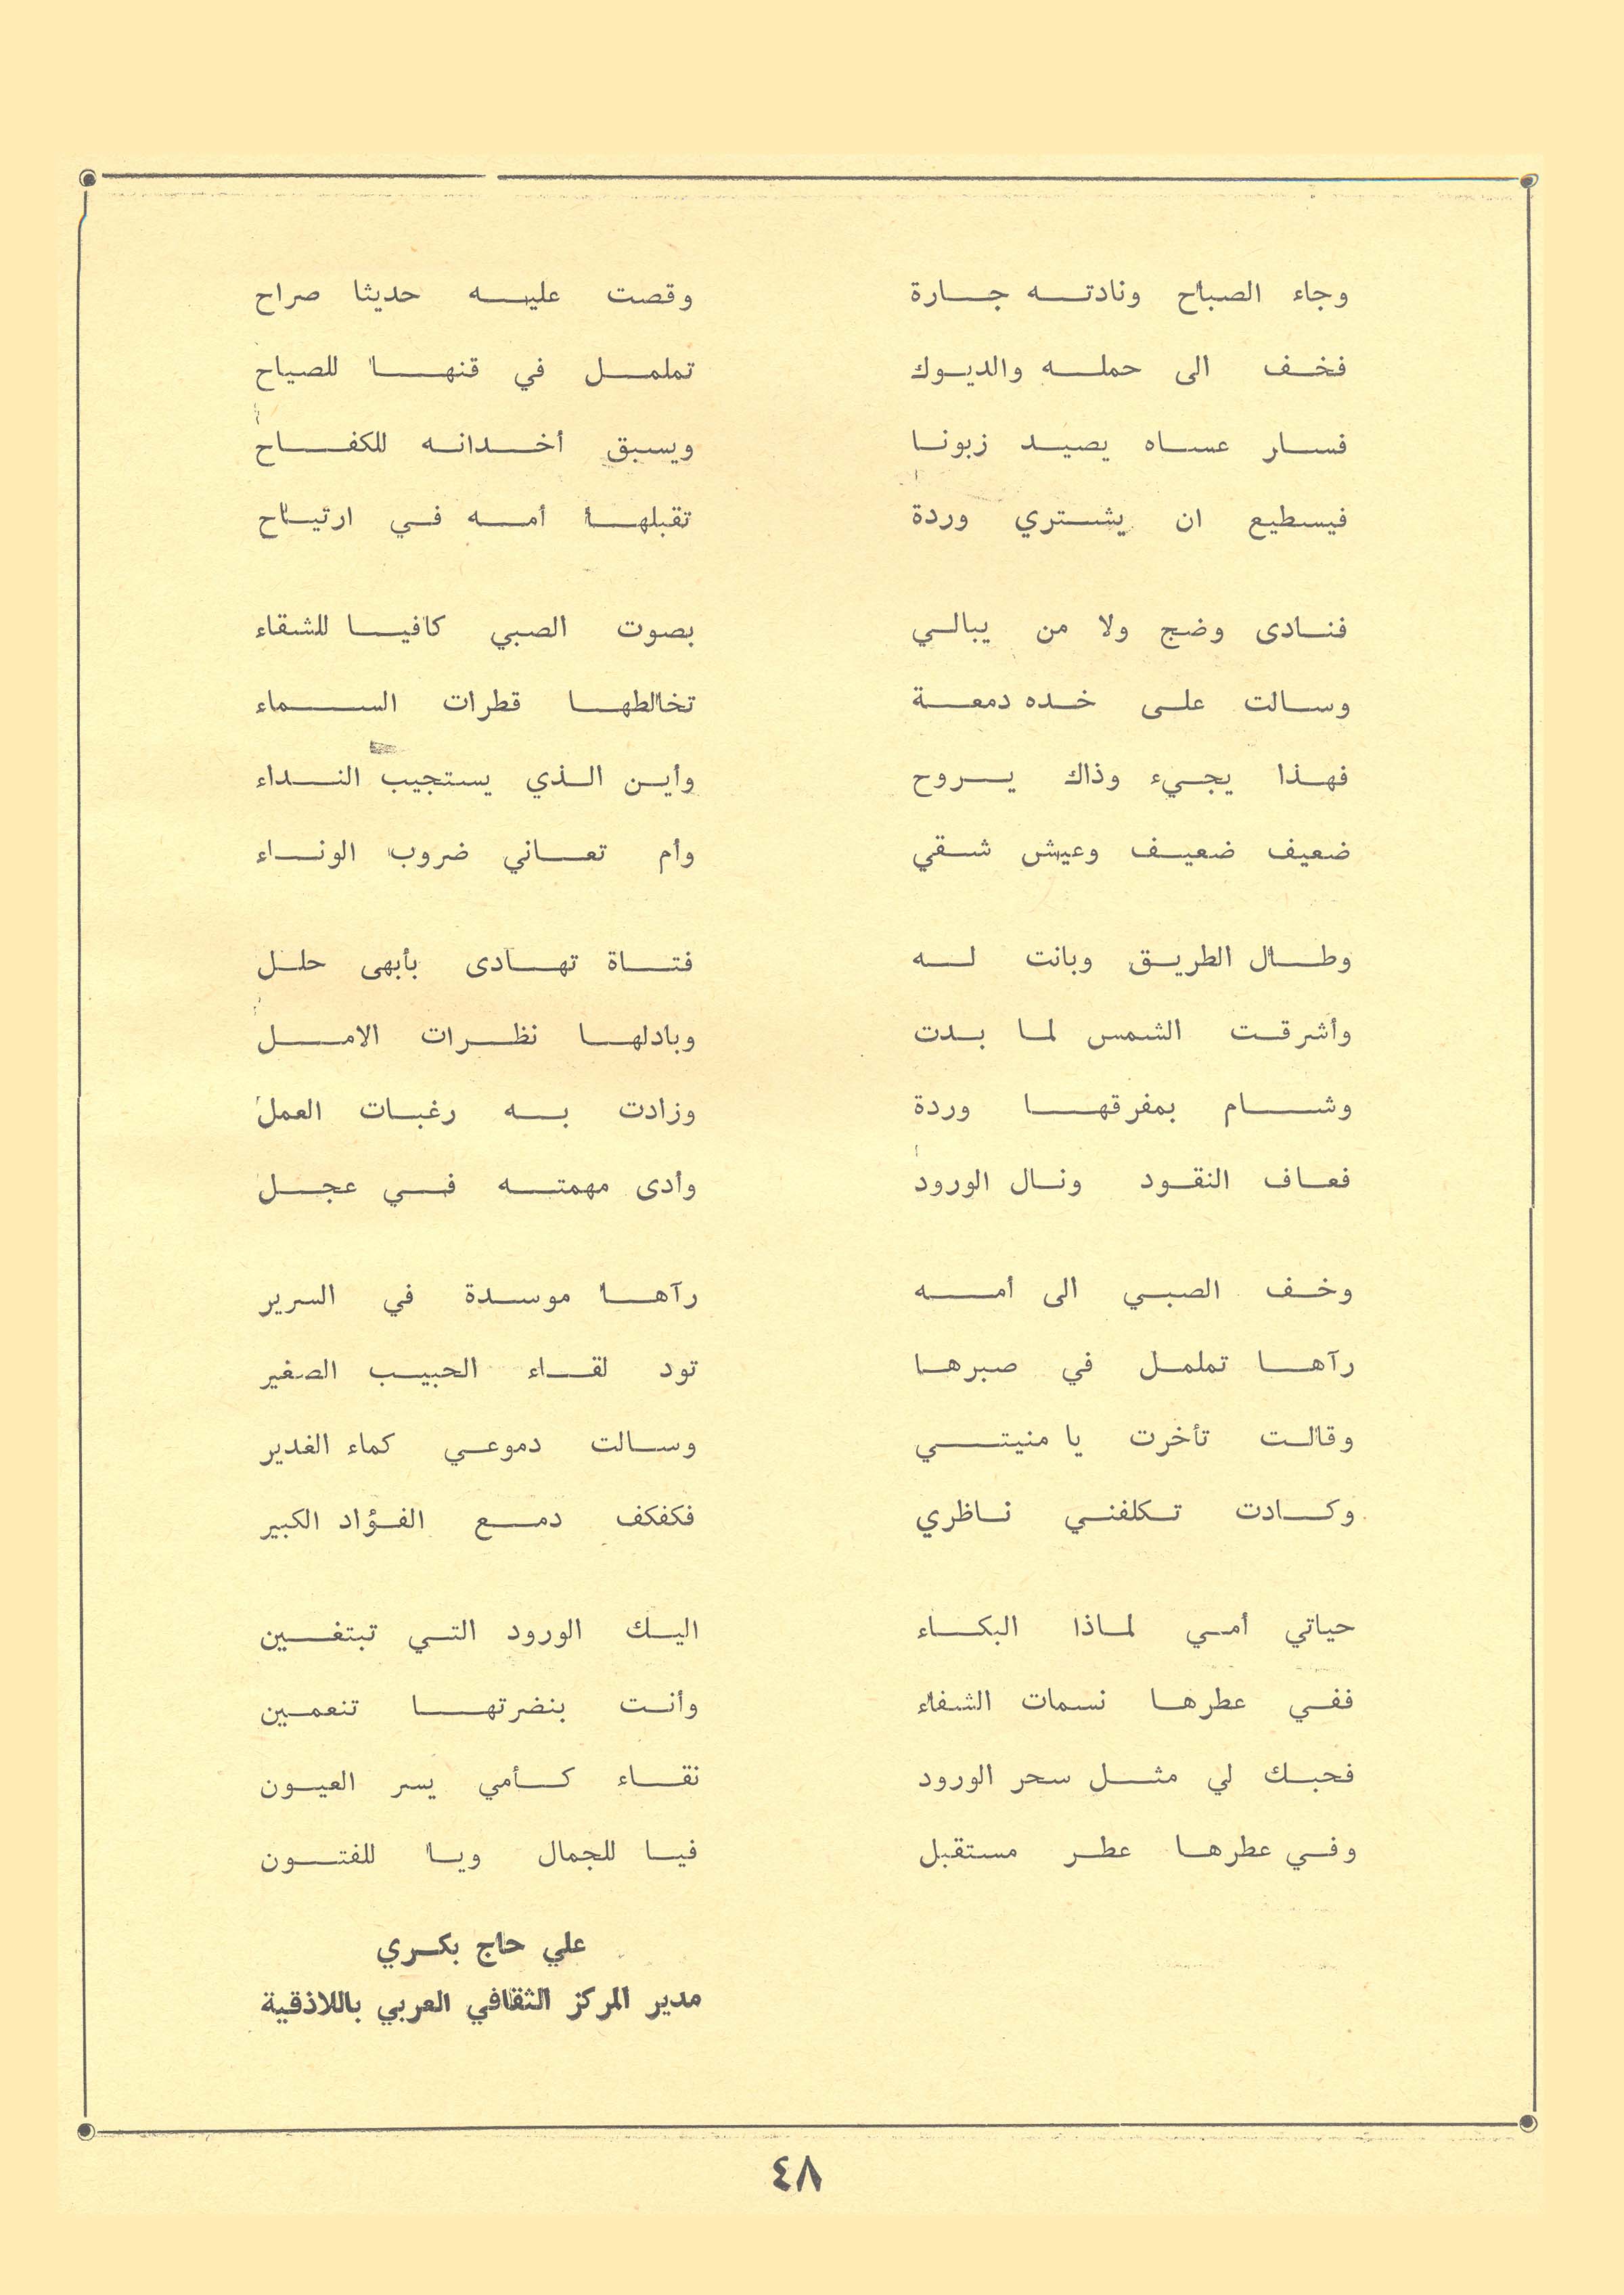 وجاء الصباح ونادته جارة وقصت عليه حديثا صراح
فخف الى حمله والديوك تململ في قنها للصياح
فسار عساه يصيد زبونا ويسبق أخدانه للكفاح
فيسطيع ان يشتري وردة تقبلها أمه في ارتياح
فنادى وضج ولا من يبالي بصوت الصبي كافيا للشقاء
وسالت على خده دمعة تخالطها قطرات السماء
فهذا يجيء وذاك يروح وأين الذي يستجيب النداء
ضعيف ضعيف وعيش شقي وأم تعاني ضروب الوناء
وطال الطريق وبانت له فتاة تهادى بأبهى حلل
وأشرقت الشمس لما بدت وبادلها نظرات الامل
وشام بمفرقها وردة وزادت به رغبات العمل
فعاف النقود ونال الورود وأدى مهمته في عجل
وخف الصبي الى أمه رآها موسدة في السرير
رآها تململ في صبرها تود لقاء الحبيب الصغير
وقالت تأخرت يا منيتي وسالت دموعي كماء الغدير
وكادت تكلفني ناظري فكفكف دمع الفؤاد الكبير
حياتي أمي لماذا البكاء اليك الورود التي تبتغين
ففي عطرها نسمات الشفاء وأنت بنضرتها تنعمين
فحبك لي مثل سحر الورود نقاء كأمي يسر العيون
وفي عطرها عطر مستقبل فيا للجمال ويا للفتون
علي حاج بكري
مدير المركز الثقافي العربي باللاذقية
٤٨